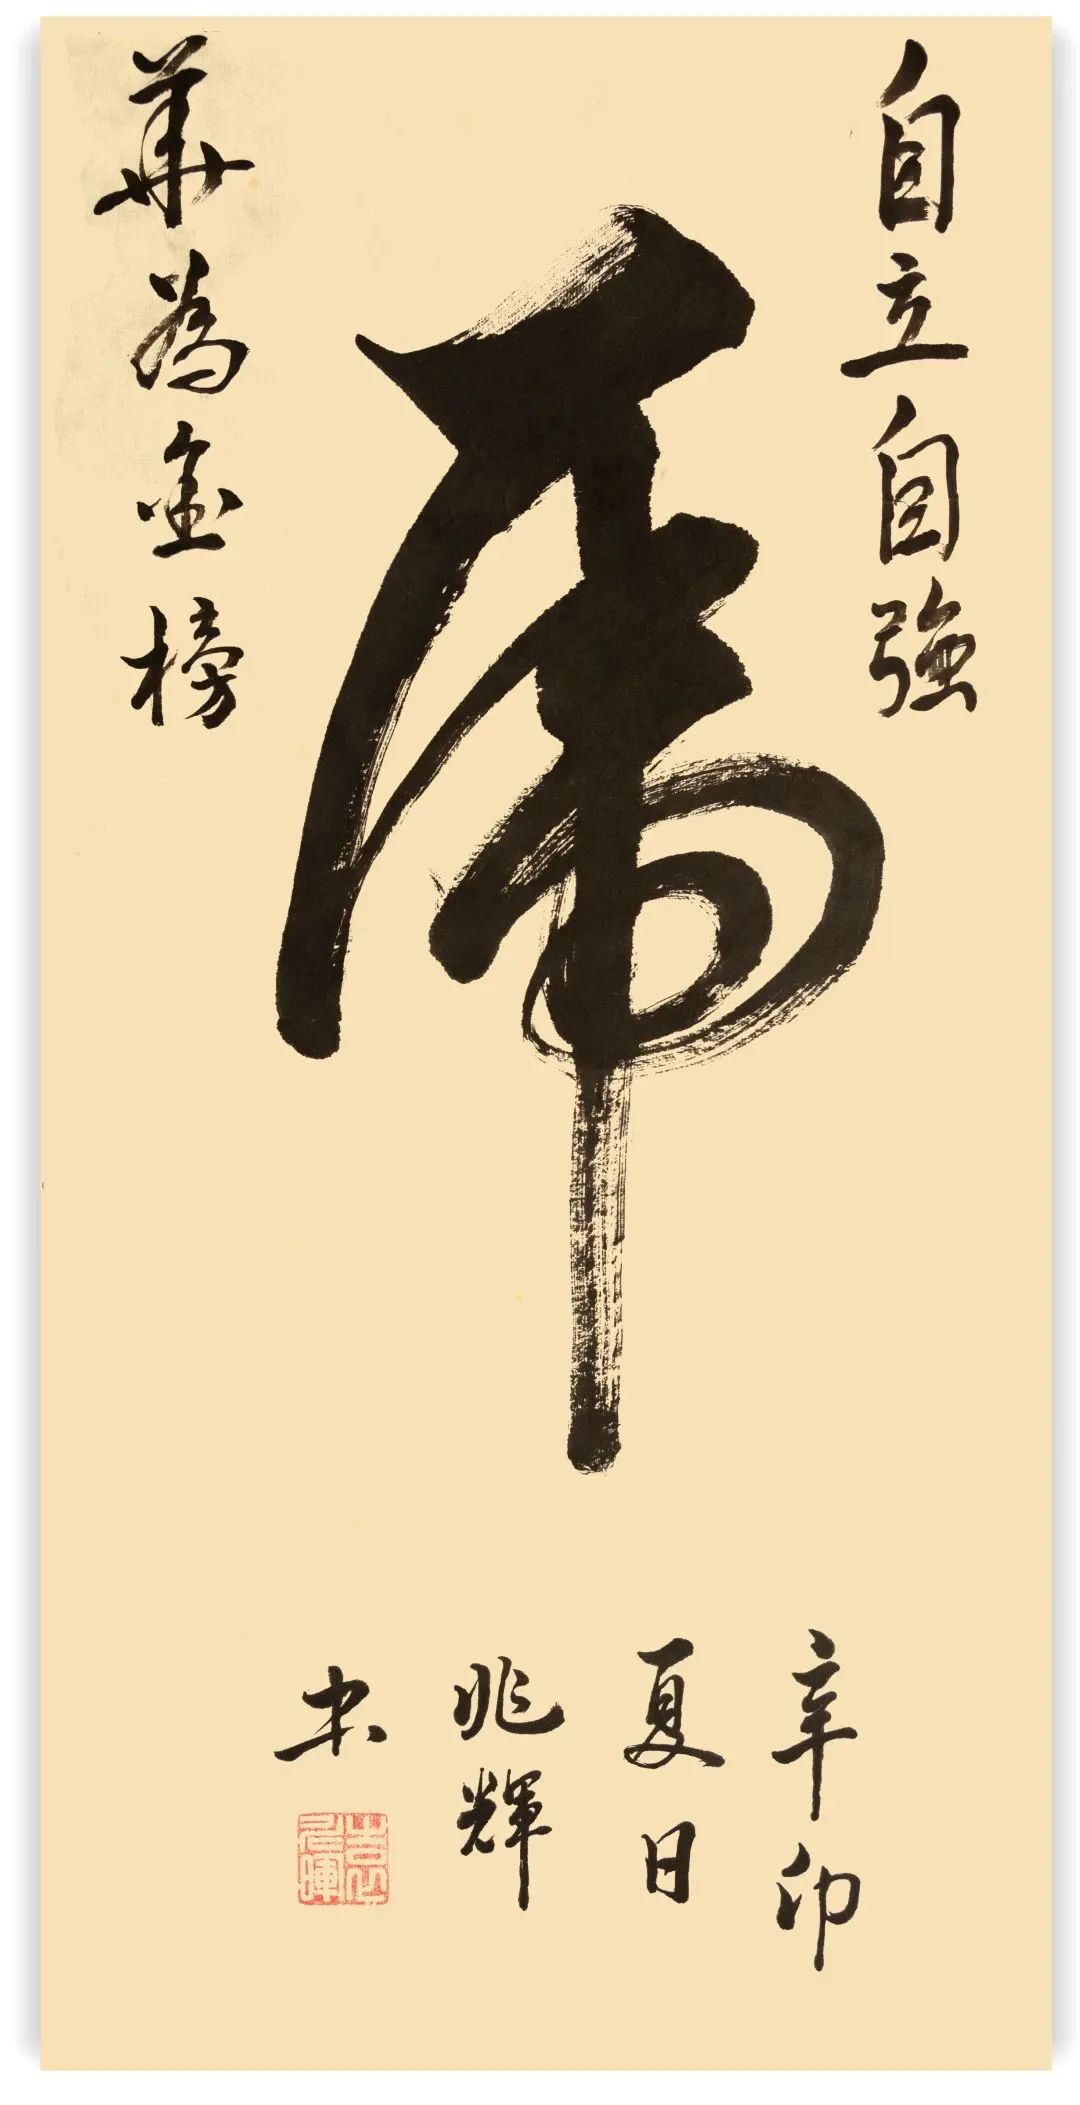 自立自強
虎
華為金榜
辛卯
夏日
兆輝
书